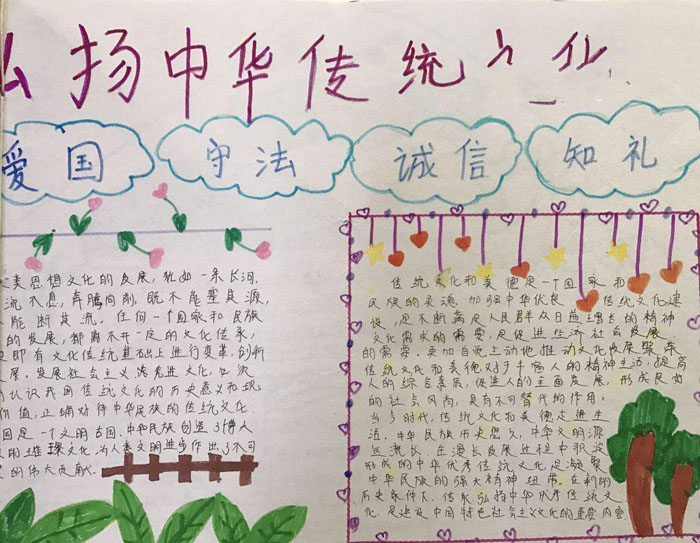 弘扬中华传统文化
爱国
守法
诚信
知礼
类思想文化的发展,犹如一条长河,
流不息,奔腾向前,既不能塞其源,
能断其流。任何一个国家和民族
的发展,都离不开一定的文化传承,
即有文化传统基础上进行变革,创新
展。发展社会主义先进文化,必须
认识我国传统文化的历史意义和现
价值,正确对待中华民族的传统文化
国是一个文明古国,中华民族创造了博大
璀璨文化,为人类文明进步作出了不可
的伟大贡献.
传统文化和美德是一个国家和
民族的灵魂,加强中华优良 传统文化建
设,是不断满足人民群众日益增长的精神
文化需求的需要,是促进经济社会发展
的需要。更加自觉主动地推动文化发展繁荣
传统文化和美德对于丰富人的精神生活,提高
人的综合素质,促进人的全面发展,形成良好
的社会风尚,具有不可替代的作用。
当今时代,传统文化和美德走进生
活。中华民族历史悠久,中华文明源
远流长,在漫长发展进程中积淀
形成的中华优秀传统文化,是凝聚
中华民族的强大精神纽带,在新的
历史条件下,传承弘扬中华优秀传统文
化,是建设中国特色社会主义文化的重要内容